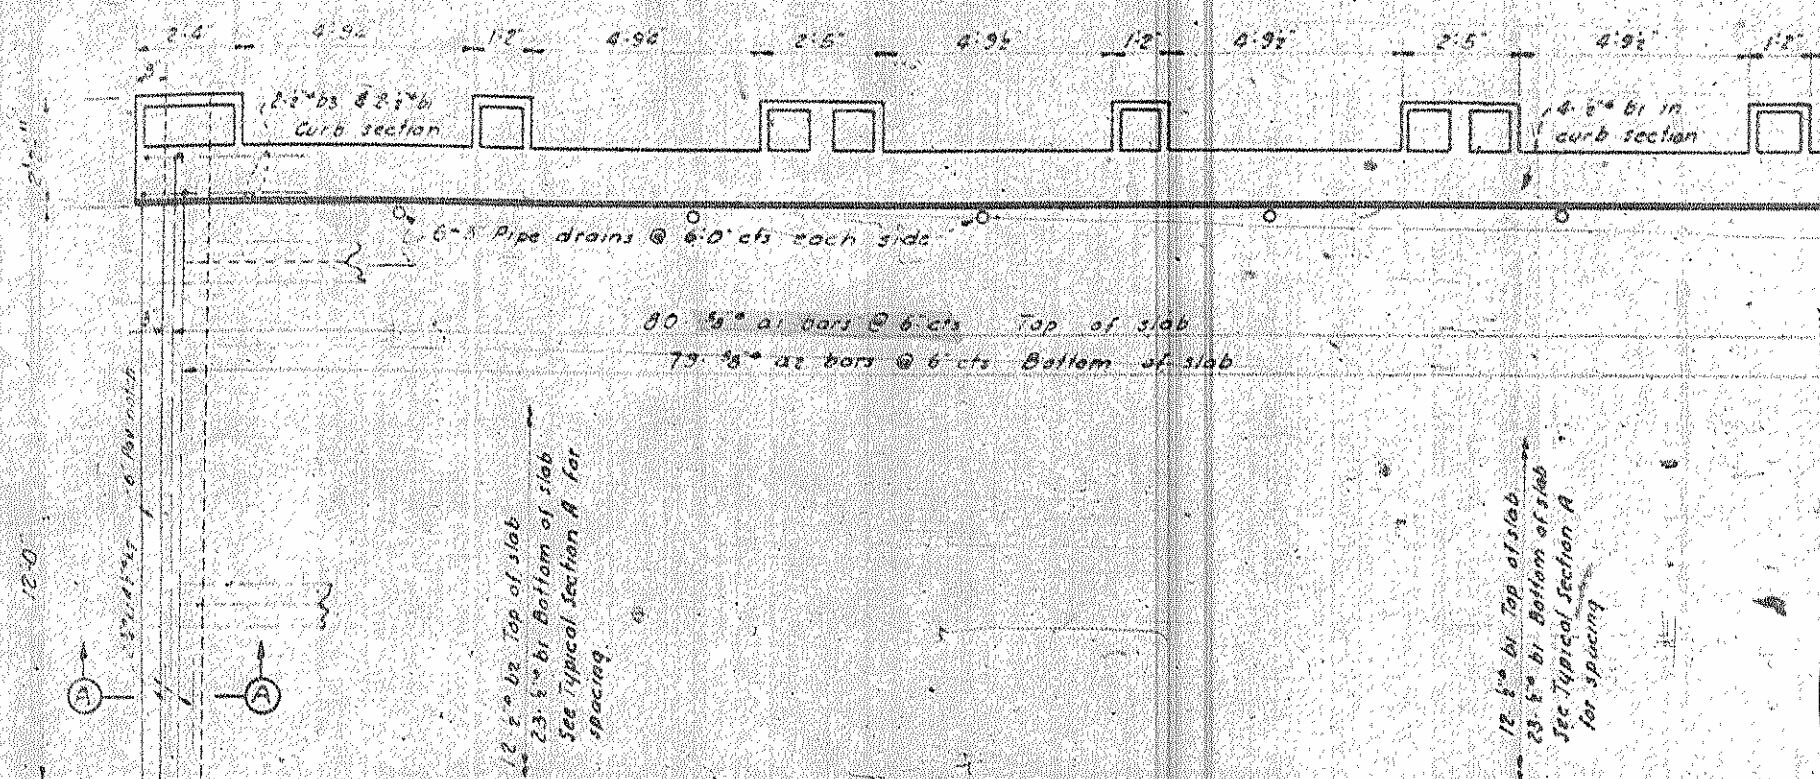 2'-4" 4'-9½ 1'-2" 4'-9½ 2'-5" 4'-9½" 1'-2" 4'-9½" 2'-5" 4'-9½" 1'-2"
3"
2-½"ᶲ b3 & 2-½"ᶲ b1
Curb section
4-½"ᶲ b1 in
curb section
Pipe drains @ 6'-0" cts each side
80 ⅝"ᶲ a1 bars @ 6" cts Top of slab
79-⅝"ᶲ a2 bars @ 6" cts Bottom of slab
3"
12'-0"
12 ½"ᶲ b2 Top of slab
23-½"ᶲ b1 Bottom of slab
See Typical Section A for
spacing.
12-½"ᶲ b1 Top of slab
23-½"ᶲ b1 Bottom of slab
See Typical Section A
for spacing
A A